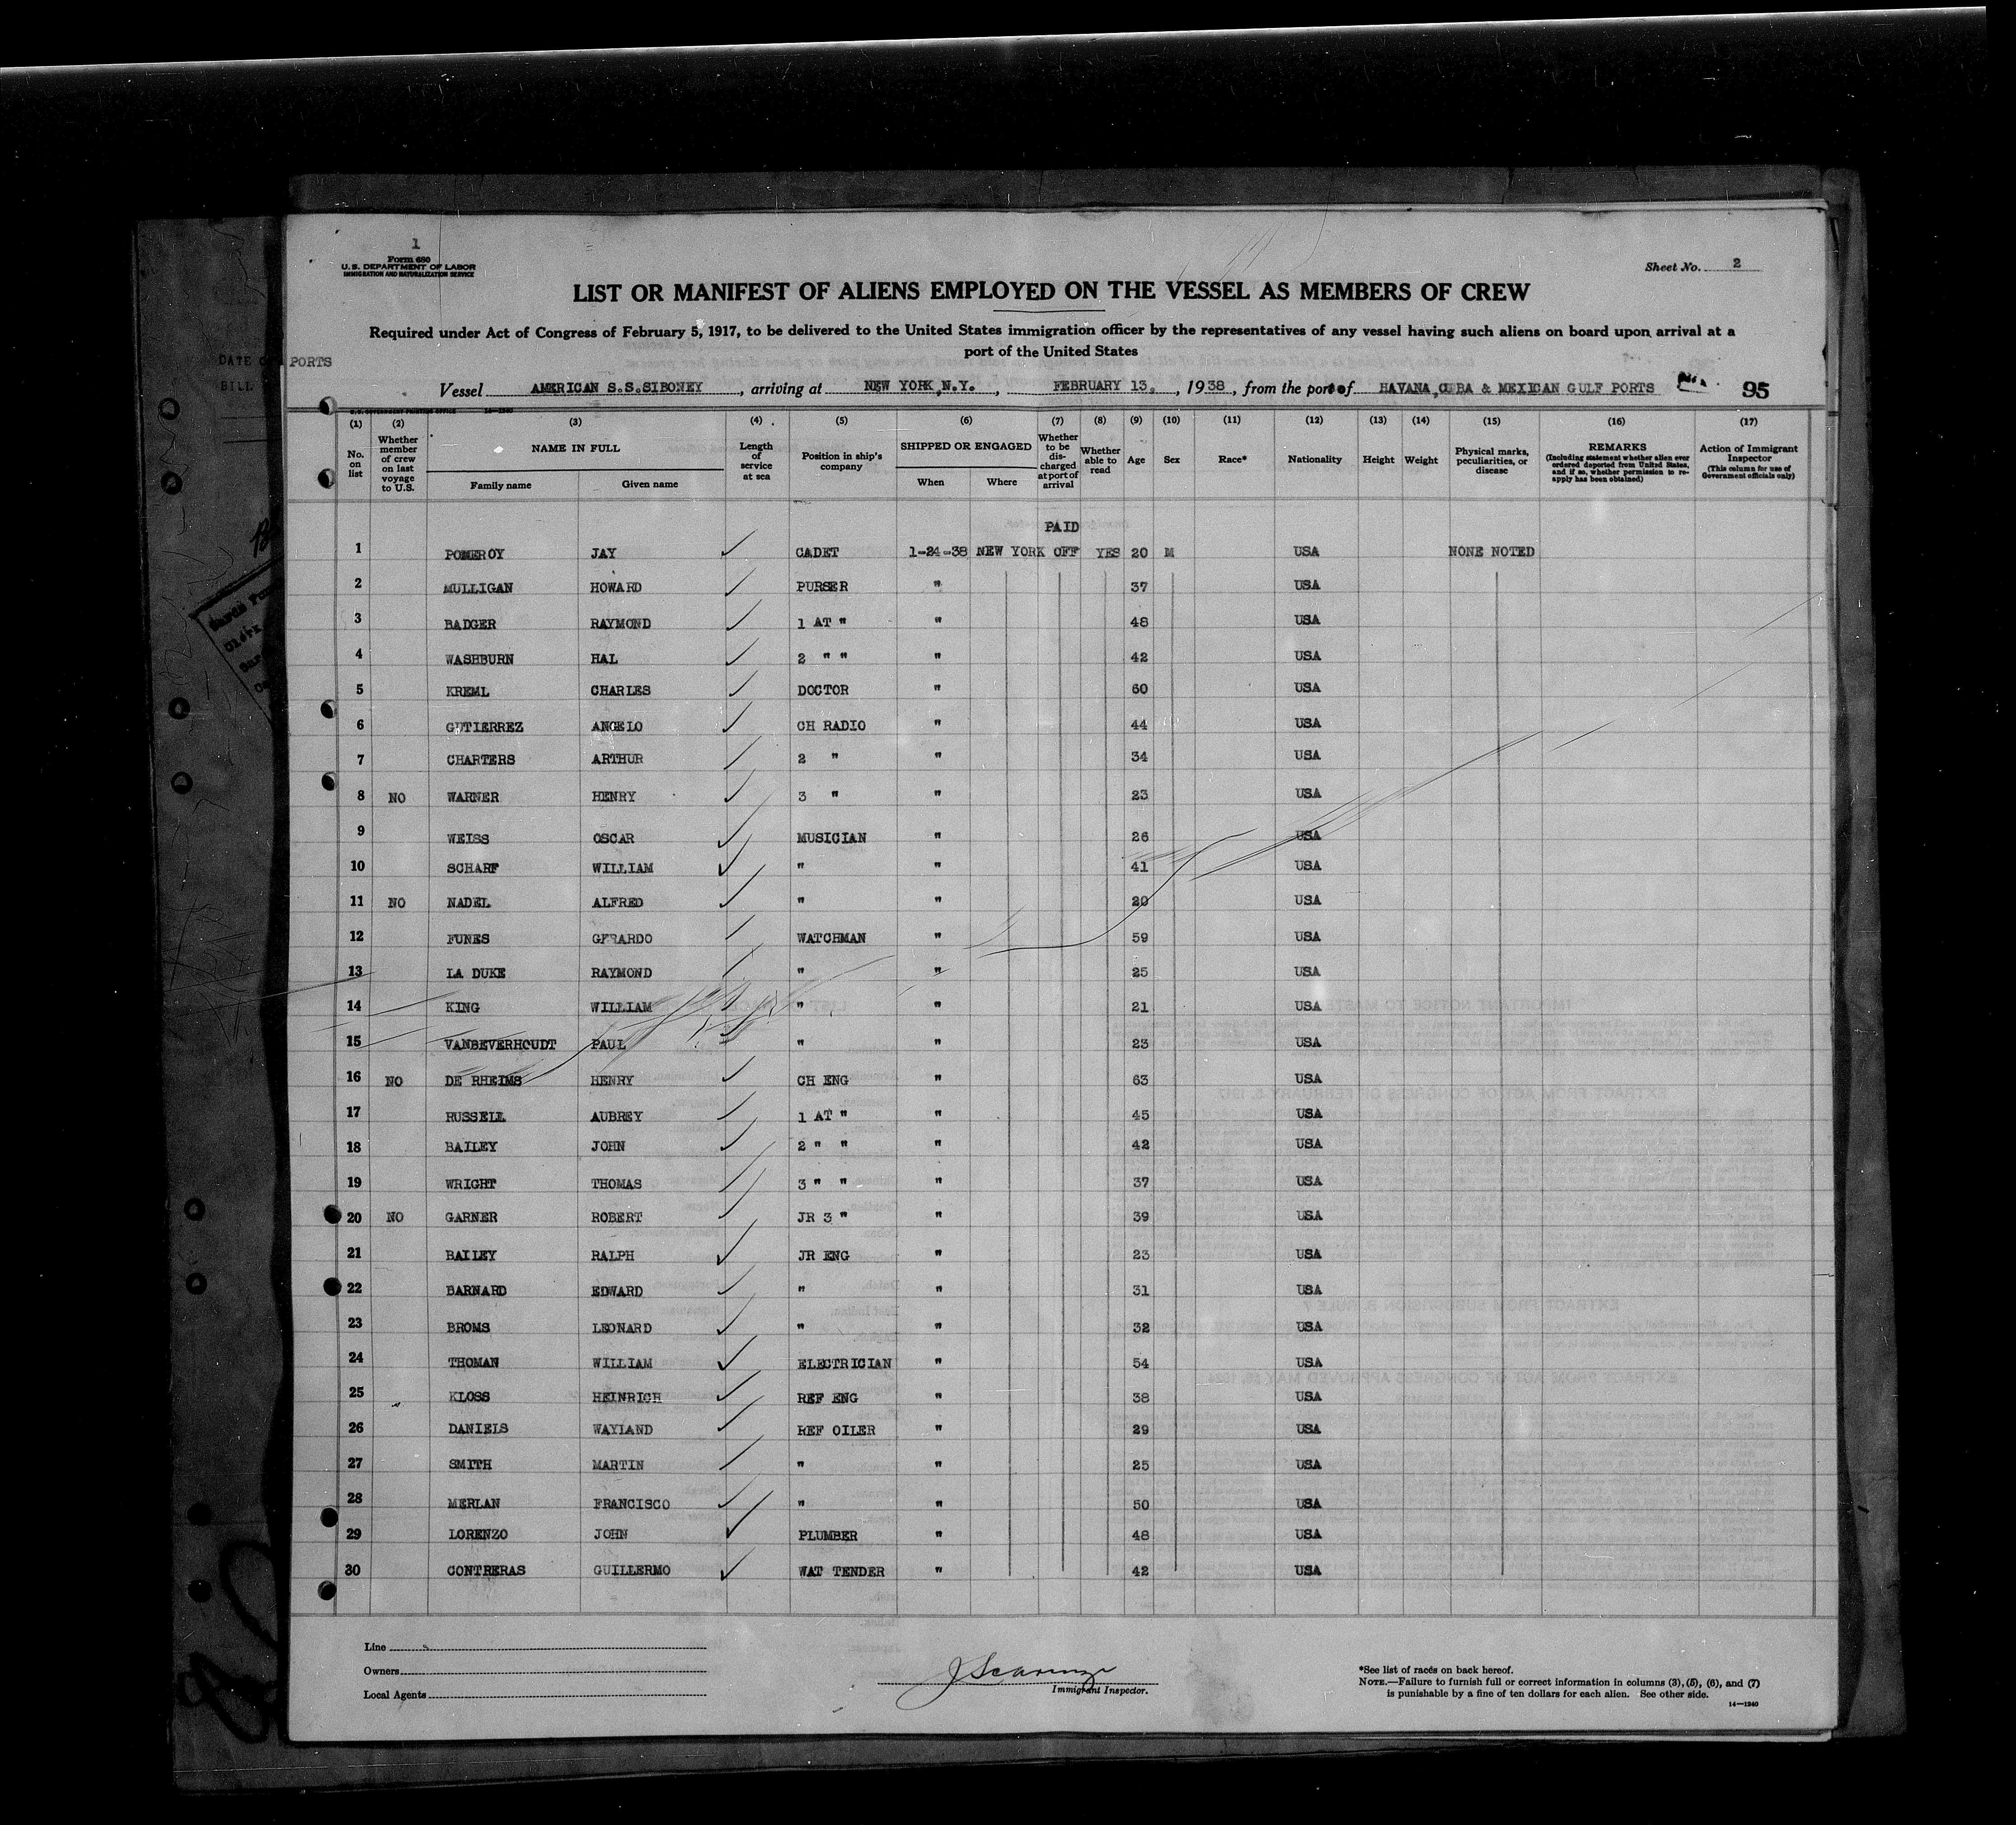 1
Form 680
U. S. DEPARTMENT OF LABOR
IMMIGRATION AND NATURALIZATION SERVICE
Sheet No. 2
LIST OR MANIFEST OF ALIENS EMPLOYED ON THE VESSEL AS MEMBERS OF CREW
Required under Act of Congress of February 5, 1917, to be delivered to the United States immigration officer by the representatives of any vessel having such aliens on board upon arrival at a
port of the United States
DATE PORTS
BILL
Vessel AMERICAN S.S.SIBONEY, arriving at NEW YORK,N.Y., FEBRUARY 13, 1938, from the port of HAVANA,CUBA & MEXICAN GULF PORTS 95
U. S. GOVERNMENT PRINTING OFFICE 14—1240
(1) (2) (3) (4) (5) (6) (7) (8) (9) (10) (11) (12) (13) (14) (15) (16) (17)
No. on list
Whether member of crew on last voyage to U.S.
NAME IN FULL
Family name Given name
Length of service at sea
Position in ship's company
SHIPPED OR ENGAGED
When Where
Whether to be discharged at port of arrival
Whether able to read
Age Sex Race* Nationality Height Weight
Physical marks, peculiarities, or disease
REMARKS
(Including statement whether alien ever ordered deported from United States, and if so, whether permission to re-apply has been obtained)
Action of Immigrant Inspector
(This column for use of Government officials only)
PAID
1 POMEROY JAY CADET 1-24-38 NEW YORK OFF YES 20 M USA NONE NOTED
2 MULLIGAN HOWARD PURSER " 37 USA
3 BADGER RAYMOND 1 AT " " 48 USA
4 WASHBURN HAL 2 " " " 42 USA
5 KREML CHARLES DOCTOR " 60 USA
6 GUTIERREZ ANGELO CH RADIO " 44 USA
7 CHARTERS ARTHUR 2 " " 34 USA
8 NO WARNER HENRY 3 " " 23 USA
9 WEISS OSCAR MUSICIAN " 26 USA
10 SCHARF WILLIAM " " 41 USA
11 NO NADEL ALFRED " " 20 USA
12 FUNES GERARDO WATCHMAN " 59 USA
13 LA DUKE RAYMOND " " 25 USA
14 KING WILLIAM " " 21 USA
15 VANBEVERHOUDT PAUL " " 23 USA
16 NO DE RHEIMS HENRY CH ENG " 63 USA
17 RUSSELL AUBREY 1 AT " " 45 USA
18 BAILEY JOHN 2 " " " 42 USA
19 WRIGHT THOMAS 3 " " " 37 USA
20 NO GARNER ROBERT JR 3 " " 39 USA
21 BAILEY RALPH JR ENG " 23 USA
22 BARNARD EDWARD " " 31 USA
23 BROMS LEONARD " " 32 USA
24 THOMAN WILLIAM ELECTRICIAN " 54 USA
25 KLOSS HEINRICH REF ENG " 38 USA
26 DANIELS WAYLAND REF OILER " 29 USA
27 SMITH MARTIN " " 25 USA
28 MERLAN FRANCISCO " " 50 USA
29 LORENZO JOHN PLUMBER " 48 USA
30 CONTRERAS GUILLERMO WAT TENDER " 42 USA
Line
Owners
Local Agents
Immigrant Inspector.
*See list of races on back hereof.
NOTE.—Failure to furnish full or correct information in columns (3), (5), (6), and (7)
is punishable by a fine of ten dollars for each alien. See other side.
14—1240